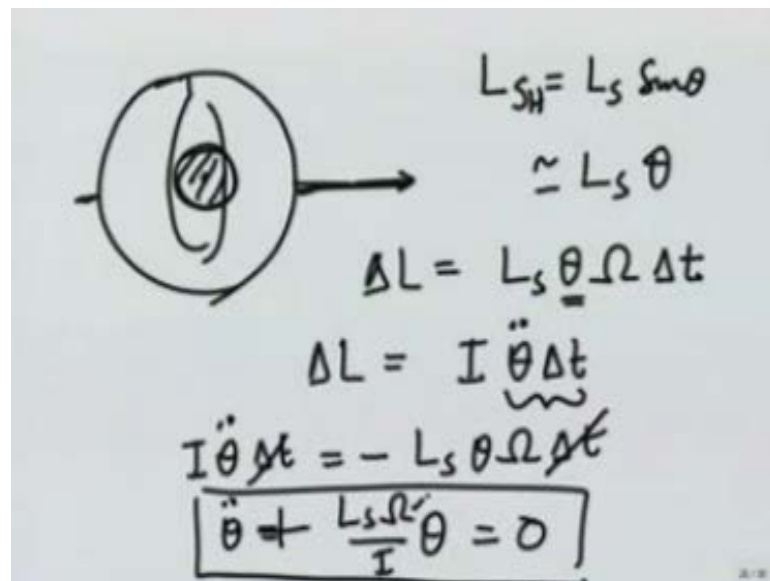 L_SH = L_S Sinθ
≃ L_S θ
ΔL = L_S θ Ω Δt
ΔL = I θ̈ Δt
I θ̈ Δt = - L_S θ Ω Δt
θ̈ + L_S Ω / I θ = 0